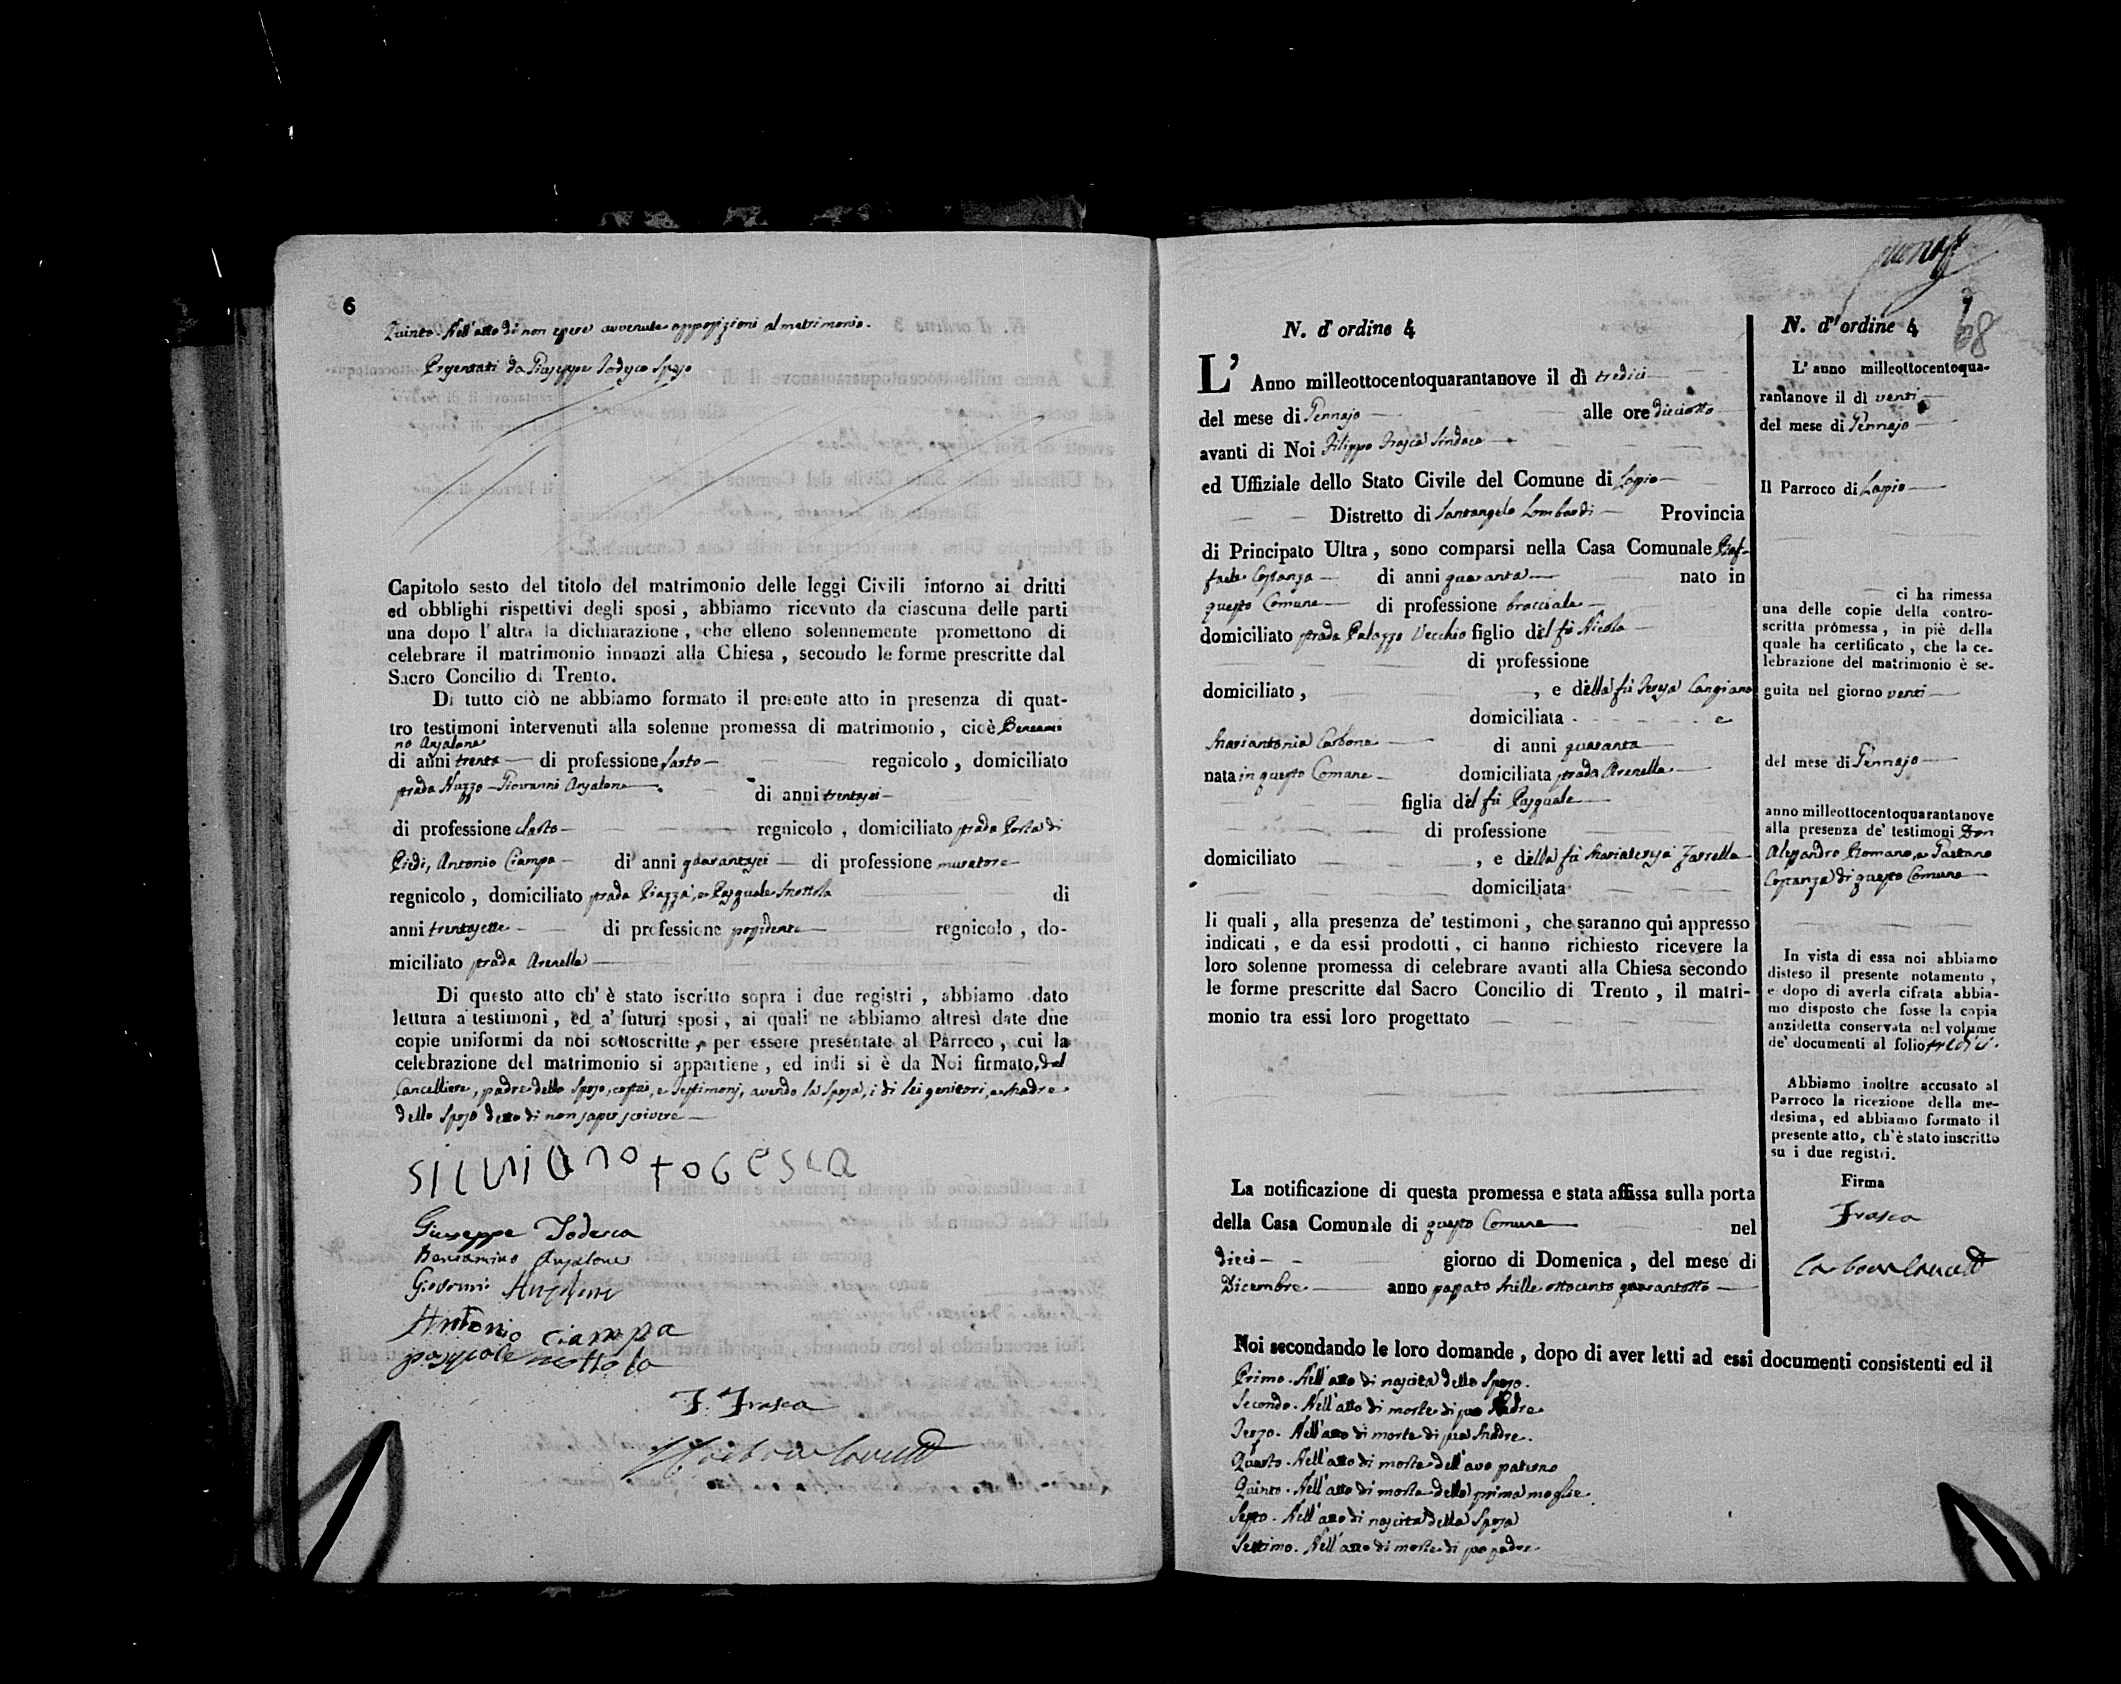 6
Quinto. Nell'atto di non essere avvenute opposizioni al matrimonio.
Presentati da Giuseppe Todesca Sposo
Capitolo sesto del titolo del matrimonio delle leggi Civili intorno ai dritti
ed obblighi rispettivi degli sposi, abbiamo ricevuto da ciascuna delle parti
una dopo l'altra la dichiarazione, che elleno solennemente promettono di
celebrare il matrimonio innanzi alla Chiesa, secondo le forme prescritte dal
Sacro Concilio di Trento.
Di tutto ciò ne abbiamo formato il presente atto in presenza di quat-
tro testimoni intervenuti alla solenne promessa di matrimonio, cioè Beniami
no Anzalone
di anni trenta di professione sarto regnicolo, domiciliato
strada Nuzzo Giovanni Anzalone di anni trentasei
di professione Sarto regnicolo, domiciliato strada Porta di
Piedi, Antonio Ciampa di anni quarantasei di professione muratore
regnicolo, domiciliato strada Piazza, e Pasquale Mottola di
anni trentasette di professione possidente regnicolo, do-
miciliato strada Arenella
Di questo atto ch'è stato iscritto sopra i due registri, abbiamo dato
lettura a' testimoni, ed a' futuri sposi, ai quali ne abbiamo altresì date due
copie uniformi da noi sottoscritte, per essere presentate al Parroco, cui la
celebrazione del matrimonio si appartiene, ed indi si è da Noi firmato, dal
Cancelliere, padre dello Sposo, costui, e Testimonj, avendo la Sposa, i di lei genitori, e Madre
dello Sposo detto di non saper scrivere
Silviano todesca
Giuseppe Todesca
Beniamino Anzalone
Giovanni Anzalone
Antonio Ciampa
pasquale mottola
F. Frasca
N. d'ordine 4
L'Anno milleottocentoquarantanove il dì tredici
del mese di Gennajo alle ore dieciotto
avanti di Noi Filippo Frasca Sindaco
ed Uffiziale dello Stato Civile del Comune di Lapio
Distretto di Santangelo Lombardi Provincia
di Principato Ultra, sono comparsi nella Casa Comunale Raf-
faele Costanza di anni quaranta nato in
questo Comune di professione bracciale
domiciliato strada Palazzo Vecchio figlio del fù Nicola
di professione
domiciliato, , e della fù Teresa Cangiano
domiciliata e
Mariantonia Carbone di anni quaranta
nata in questo Comune domiciliata strada Arenella
figlia del fù Pasquale
di professione
domiciliato , e della fù Mariateresa Zarrella
domiciliata
li quali, alla presenza de' testimoni, che saranno qui appresso
indicati, e da essi prodotti, ci hanno richiesto ricevere la
loro solenne promessa di celebrare avanti alla Chiesa secondo
le forme prescritte dal Sacro Concilio di Trento, il matri-
monio tra essi loro progettato
La notificazione di questa promessa e stata affissa sulla porta
della Casa Comunale di questo Comune nel
dieci giorno di Domenica, del mese di
Dicembre anno passato Mille ottocento quarantotto
Noi secondando le loro domande, dopo di aver letti ad essi documenti consistenti ed il
Primo. Nell'atto di nascita dello Sposo.
Secondo. Nell'atto di morte di suo Padre
Terzo. Nell'atto di morte di sua Madre.
Quarto. Nell'atto di morte dell'avo paterno
Quinto. Nell'atto di morte della prima moglie.
Sesto. Nell'atto di nascita della Sposa
Settimo. Nell'atto di morte di suo padre.
7
68
N. d'ordine 4
L'anno milleottocentoqua-
rantanove il dì venti
del mese di Gennajo
Il Parroco di Lapio
ci ha rimessa
una delle copie della contro-
scritta promessa, in piè della
quale ha certificato, che la ce-
lebrazione del matrimonio è se-
guita nel giorno venti
del mese di Gennajo
anno milleottocentoquarantanove
alla presenza de' testimoni Don
Alessandro Romano, e Gaetano
Costanza di questo Comune
In vista di essa noi abbiamo
disteso il presente notamento,
e dopo di averla cifrata abbia-
mo disposto che fosse la copia
anzidetta conservata nel volume
de' documenti al folio tredici.
Abbiamo inoltre accusato al
Parroco la ricezione della me-
desima, ed abbiamo formato il
presente atto, ch'è stato inscritto
su i due registri.
Firma
Frasca